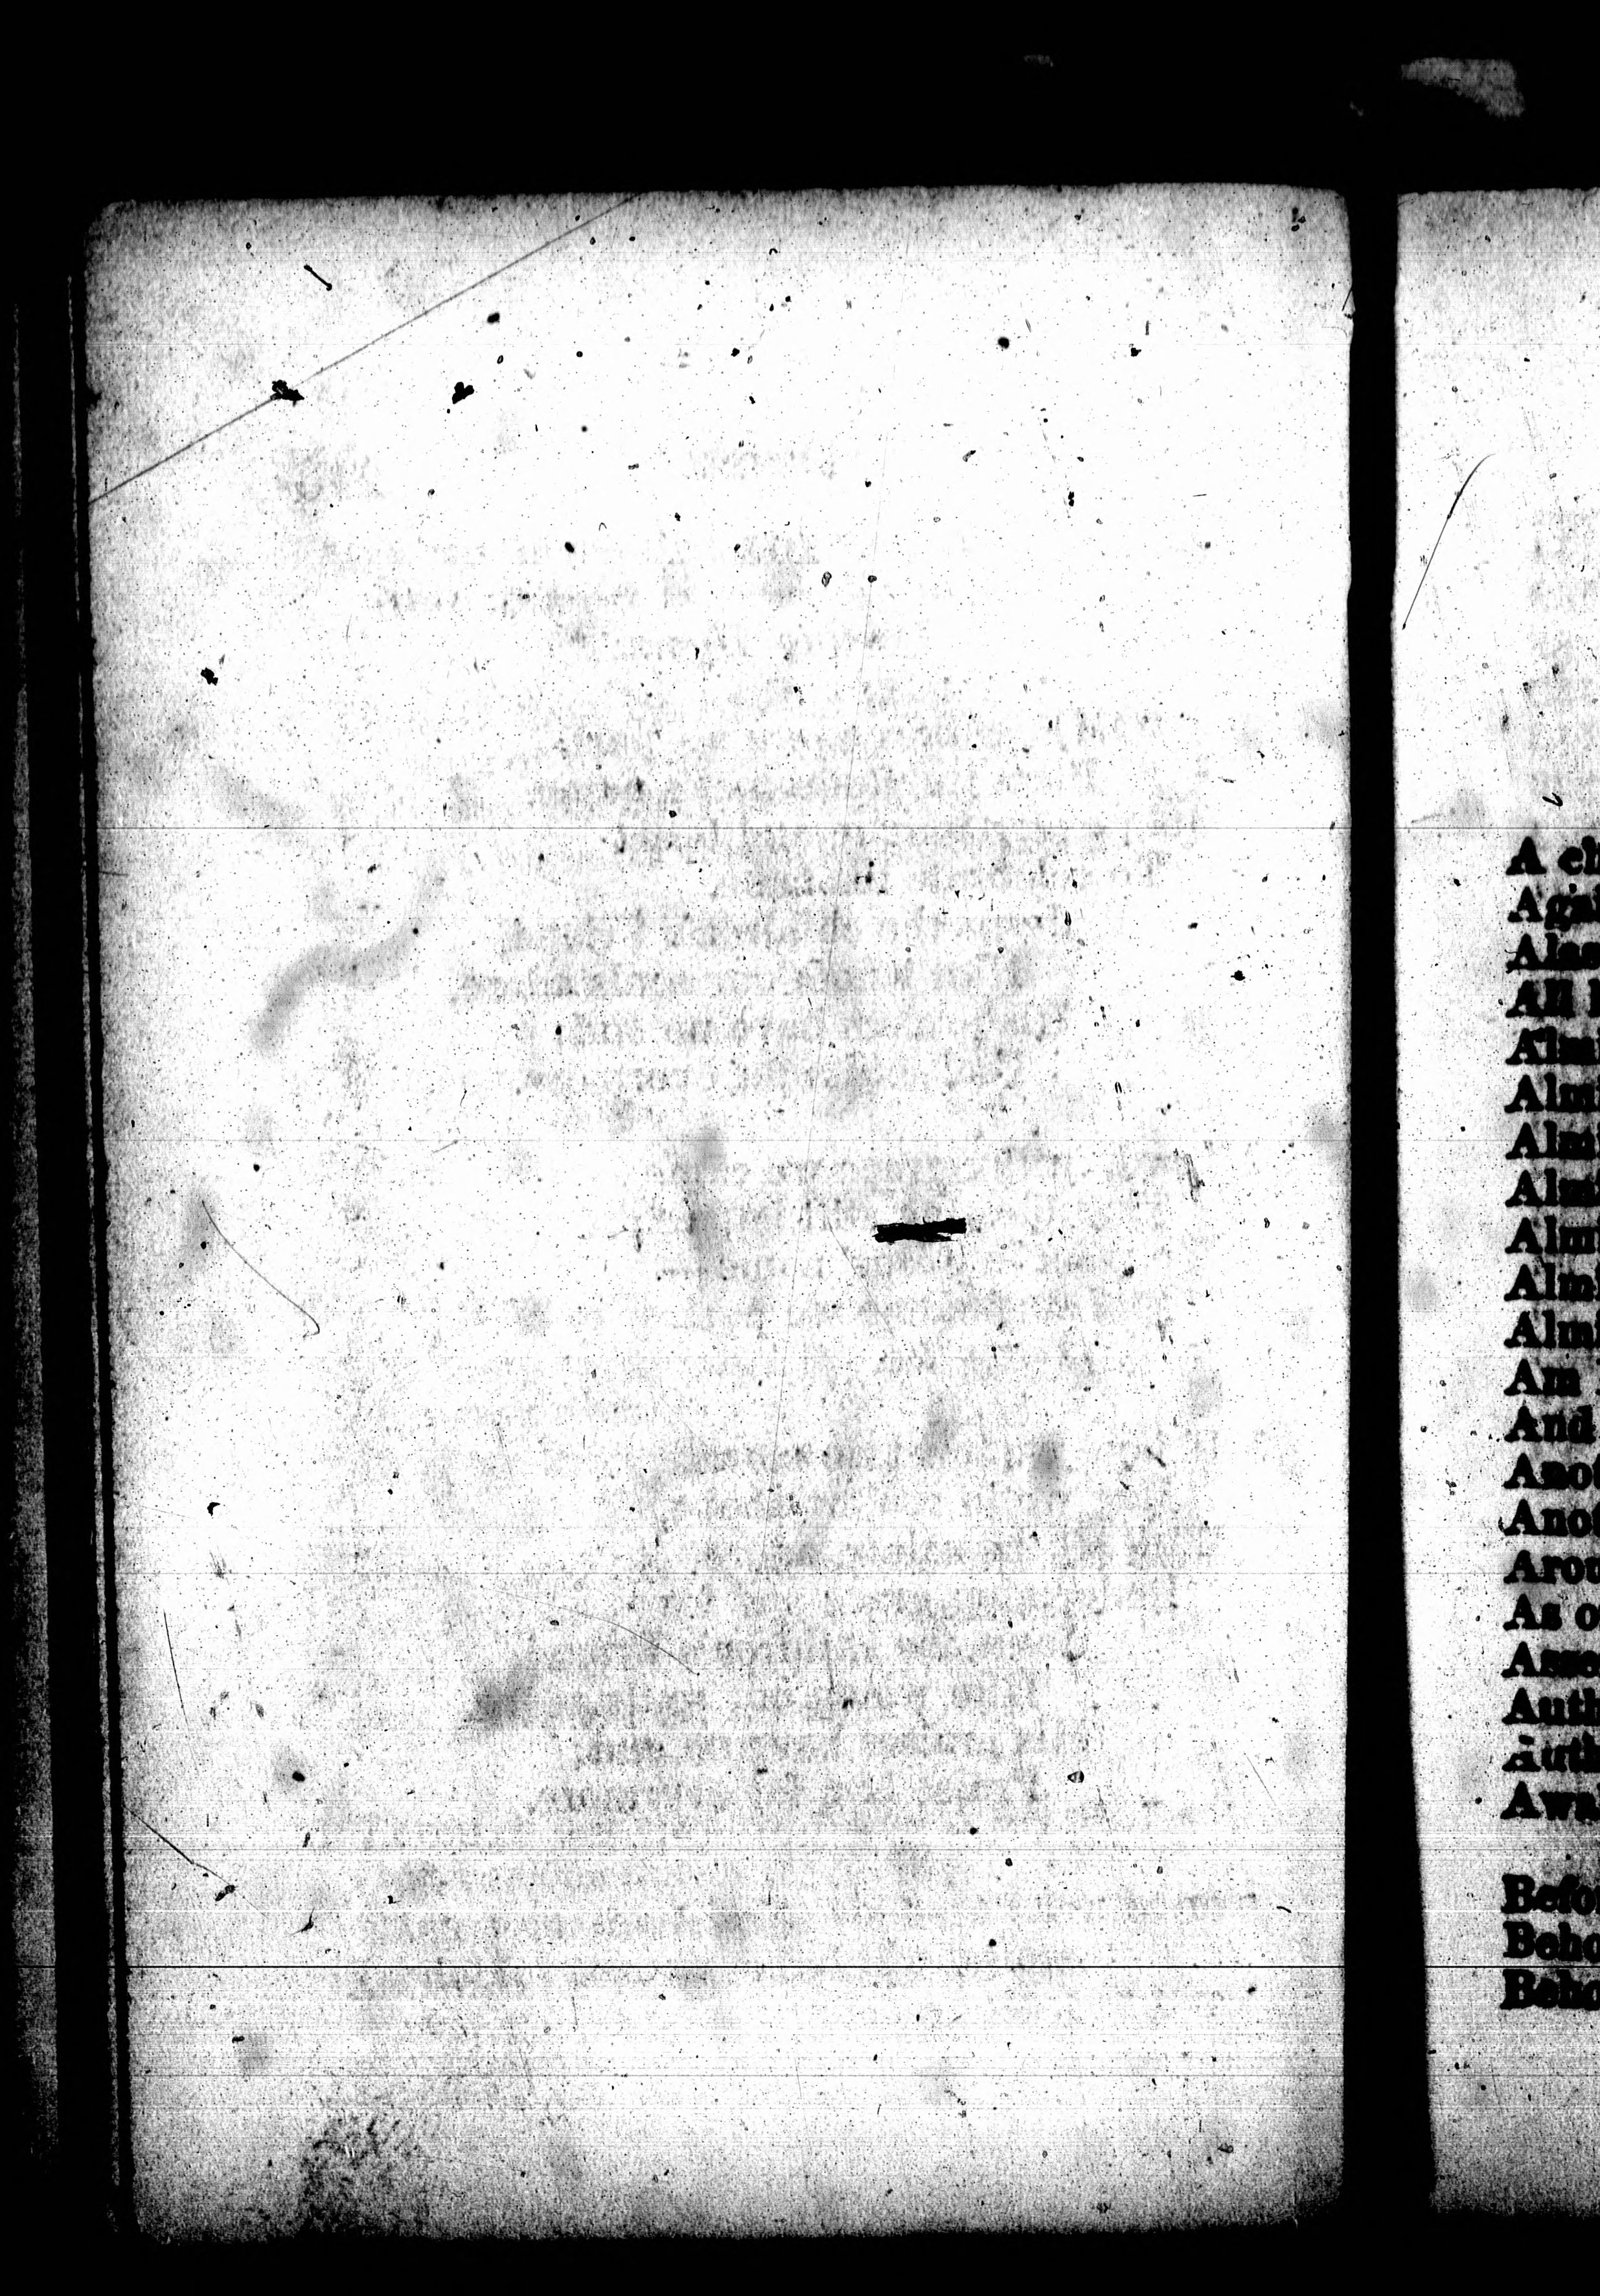 A ch
Agai
Alas
All h
Almi
Almi
Almi
Almi
Almi
Almi
Almi
Am I
And
Anot
Anot
Arou
As o
Asse
Auth
Auth
Awa
Befor
Beho
Beho